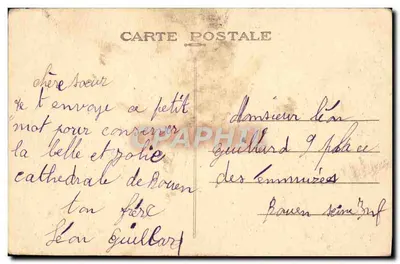 CARTE POSTALE
chère soeur
je t envoye ce petit
mot pour conserver
la belle et jolie
cathedrale de Rouen
ton frère
Léon Guillard
Monsieur Léon
Guillard 9 place
des
Rouen seine Inf